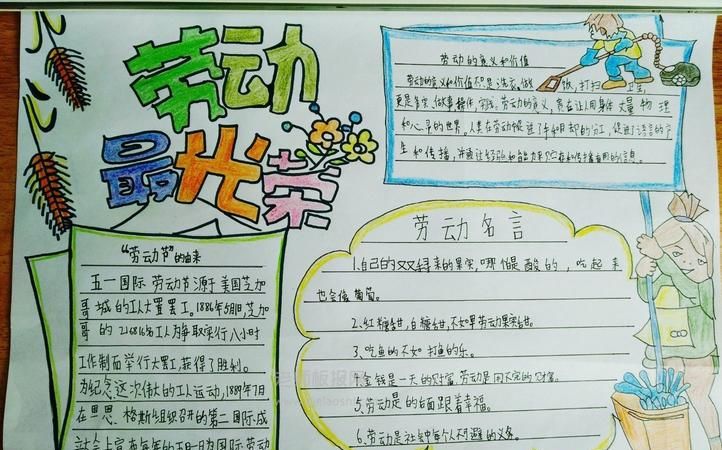 劳动
最光荣
劳动的意义和价值
劳动的意义和价值不只是洗衣、做饭,打扫卫生,
更是
劳动的意义,旨在让人用身体丈量物理
和心灵的世界。人类在劳动
促进了语言的产
生和传播,并
让经验和能力
和传播有用的信息。
“劳动节”的由来
五一国际劳动节源于美国芝加
哥城的工人大罢工。1886年5月1日,芝加
哥的216816名工人为争取实行八小时
工作制而举行大罢工,获得了胜利。
为纪念这次伟大的工人运动,1889年7月
在恩思格斯组织召开的第二国际成
立大会上宣布每年的五月一日为国际劳动
劳动名言
1、自己的双
来的果实,哪怕是酸的,吃起来
也会像葡萄。
2、红糖甜,白糖甜,不如果劳动果实甜。
3、吃鱼的不如打鱼的乐。
4、金钱是一天的财富,劳动是用不完的财富。
5、劳动是的后面跟着幸福。
6、劳动是社会中每个人不可避的义务。
老师板报网